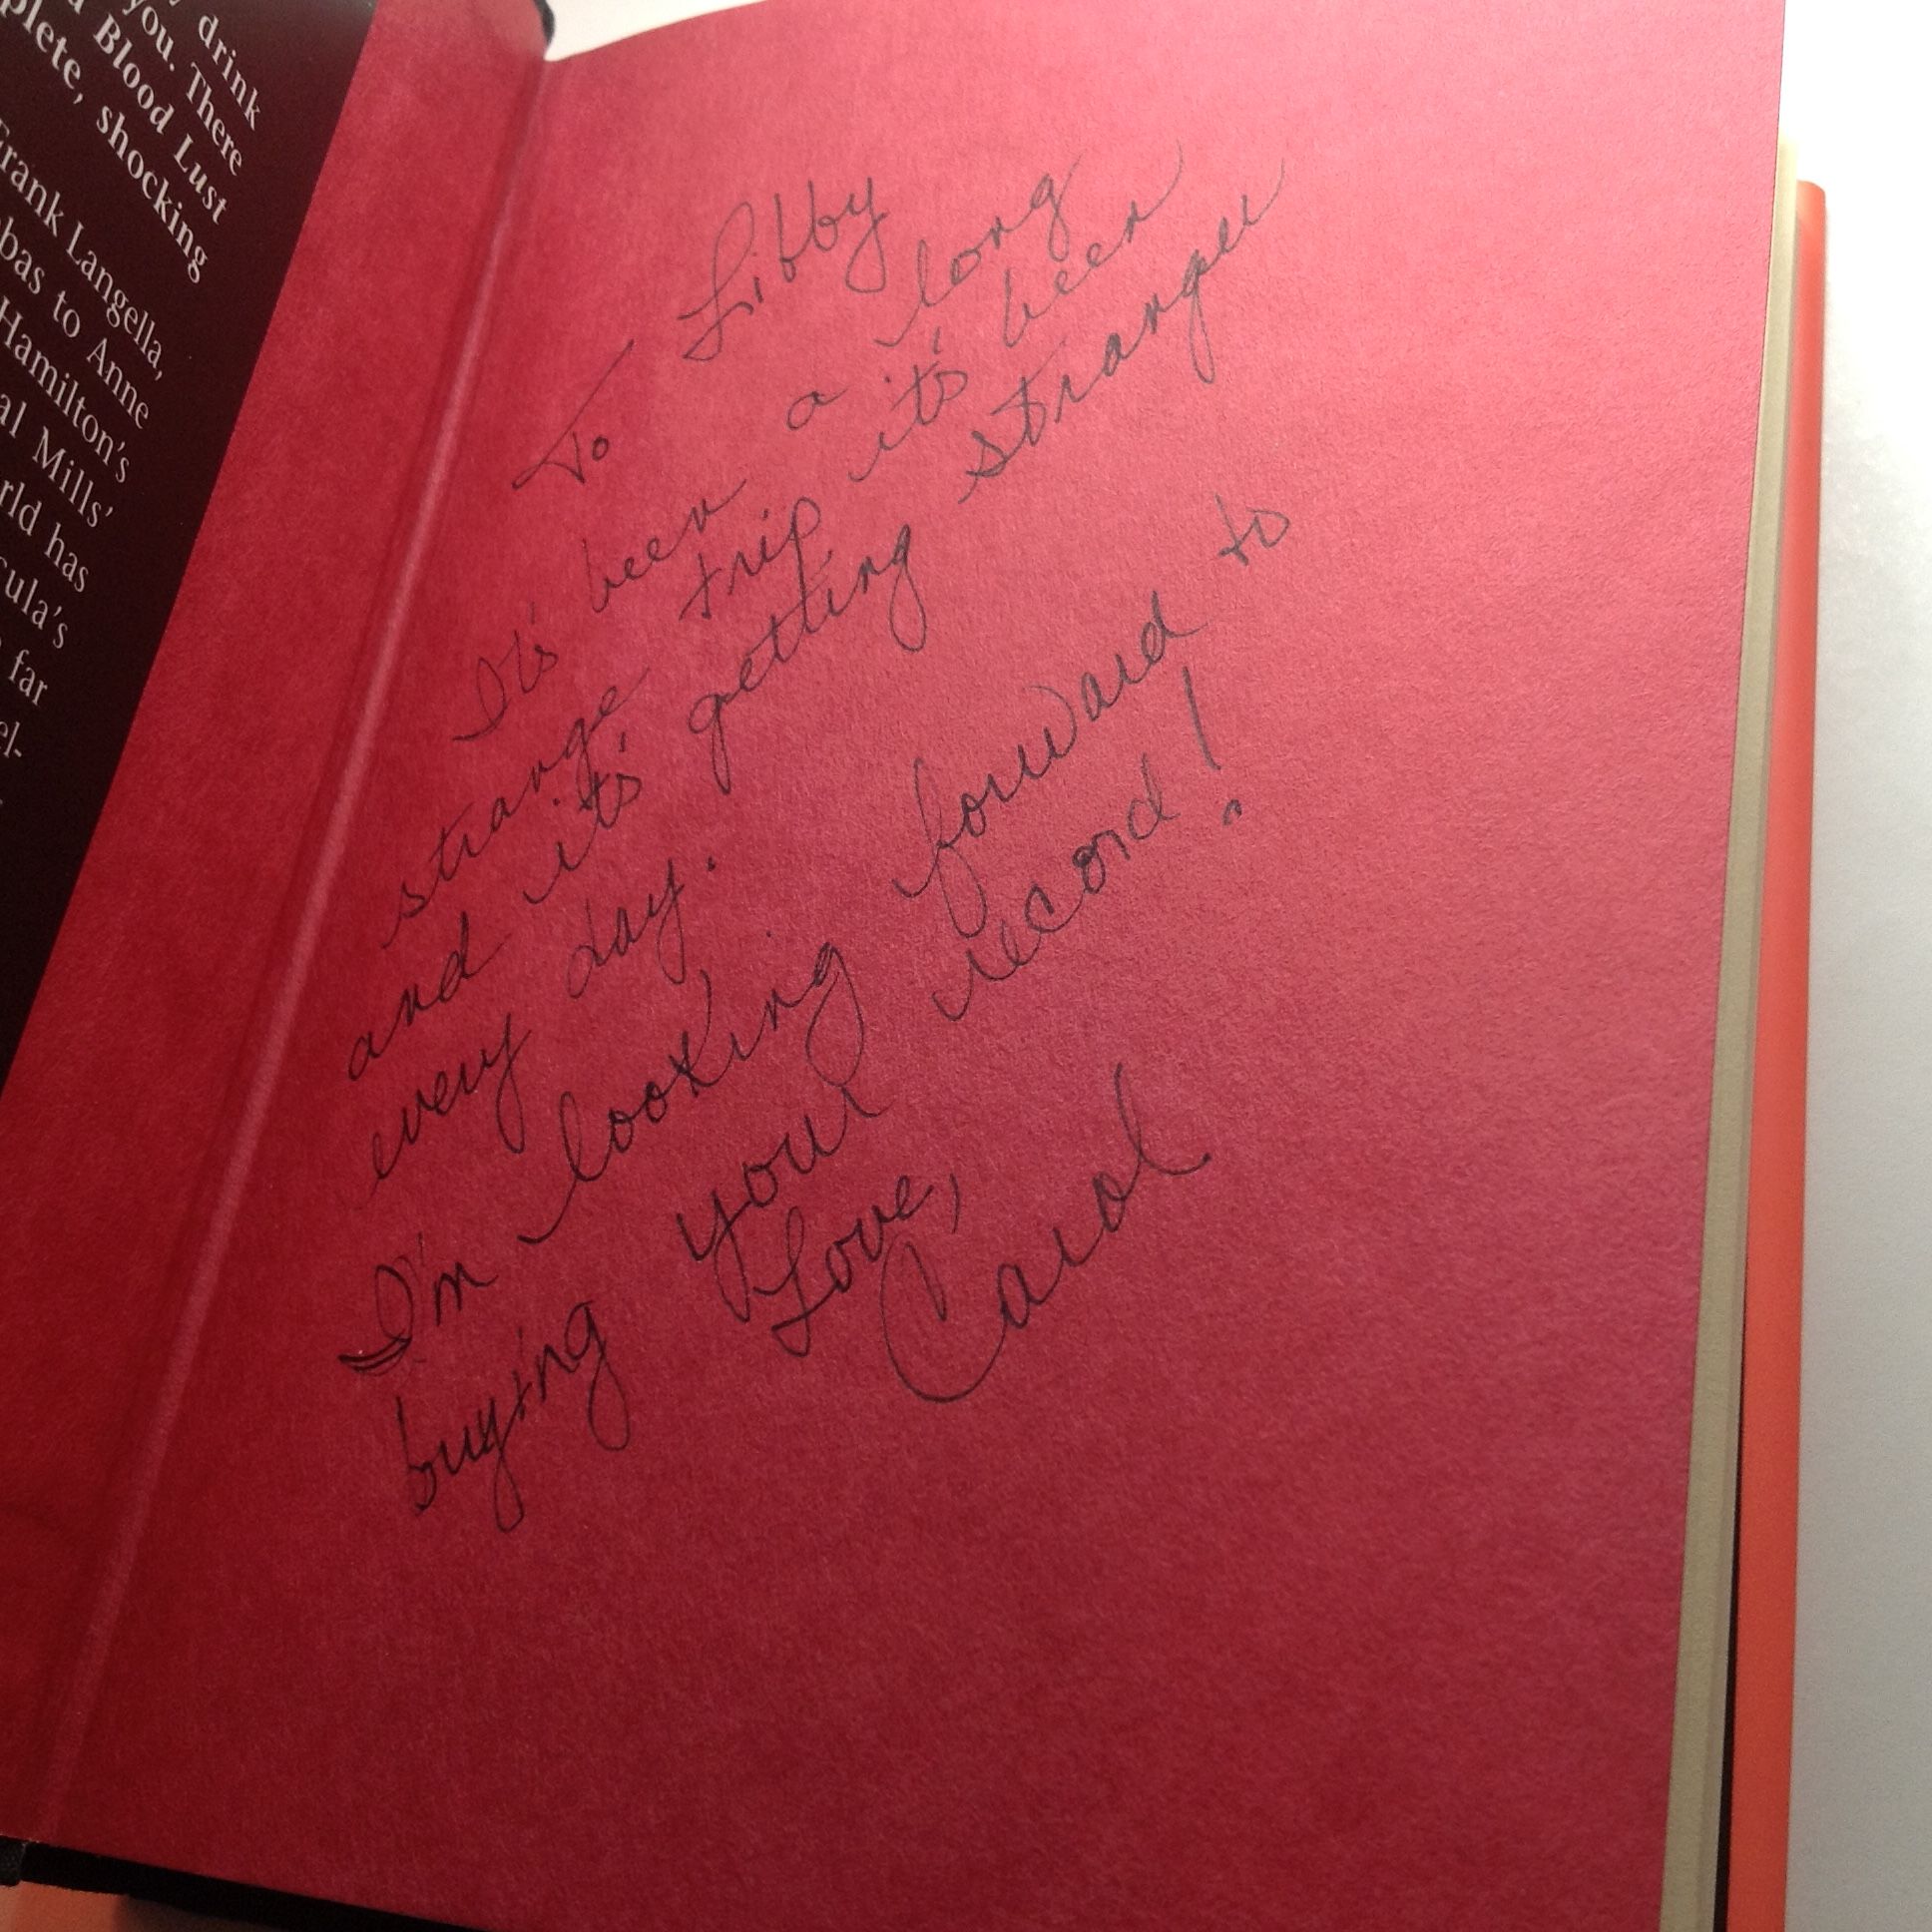 drink
you. There
Blood Lust
plete, shocking
Frank Langella,
bas to Anne
Hamilton's
al Mills'
rld has
cula's
far
el-
To Libby
It's been a long
strange trip it's been
and it's getting stranger
every day.
I'm looking forward to
buying your record!
Love,
Carol